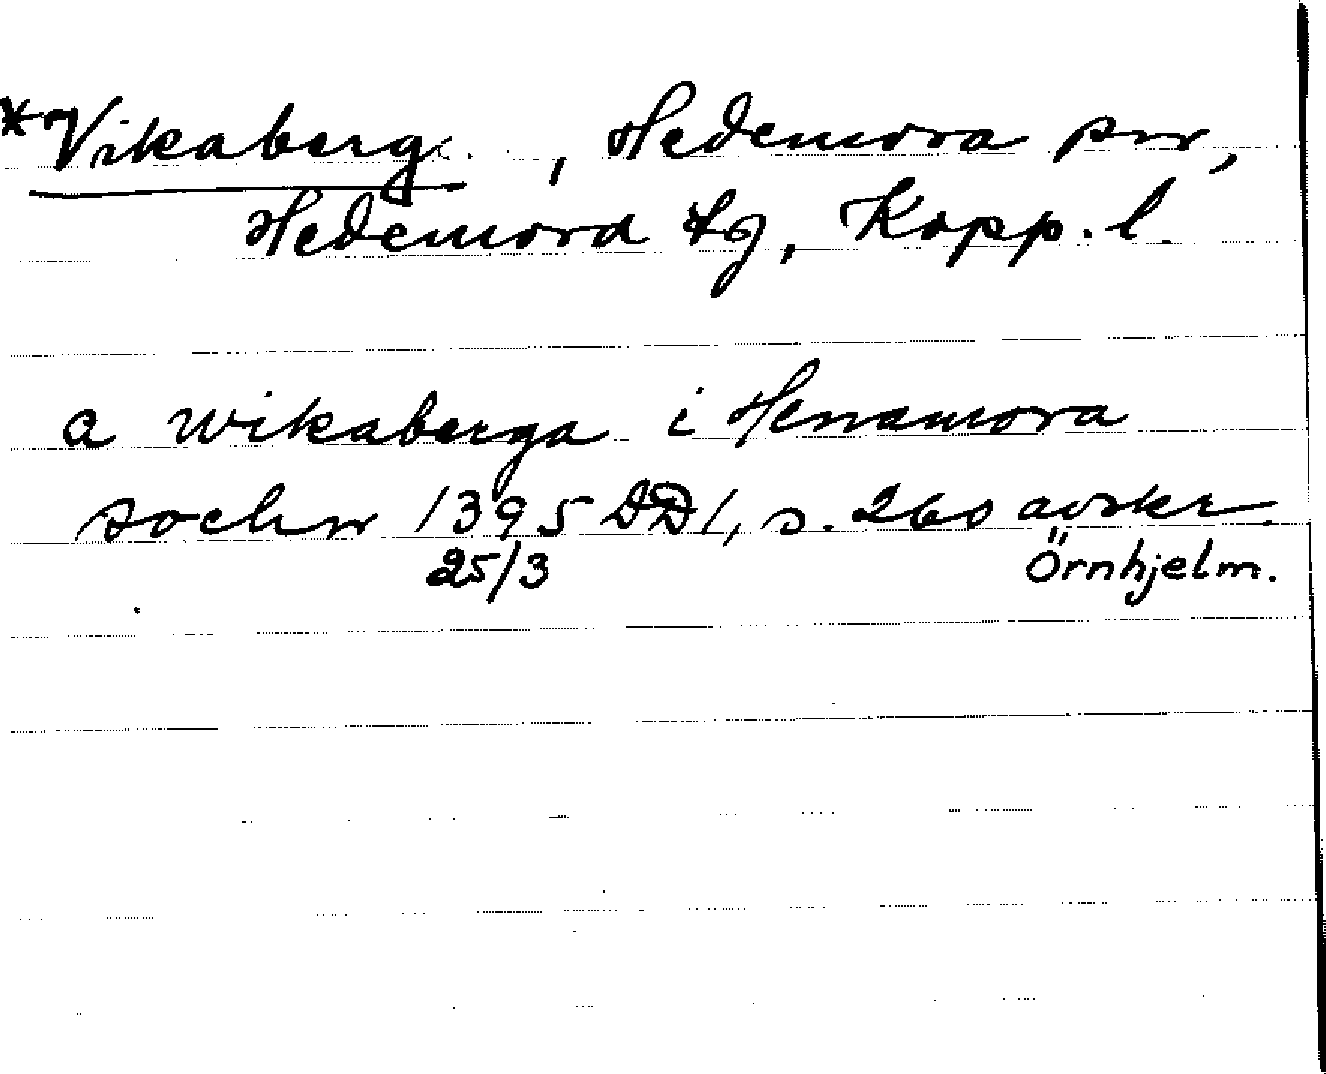 *Vikaberg, Hedemora sn,
Hedemora tg, Kopp. l.
a wikaberga i Henamora
sochn 1395 DD 1, s. 260 avskr.
25/3 Örnhjelm.